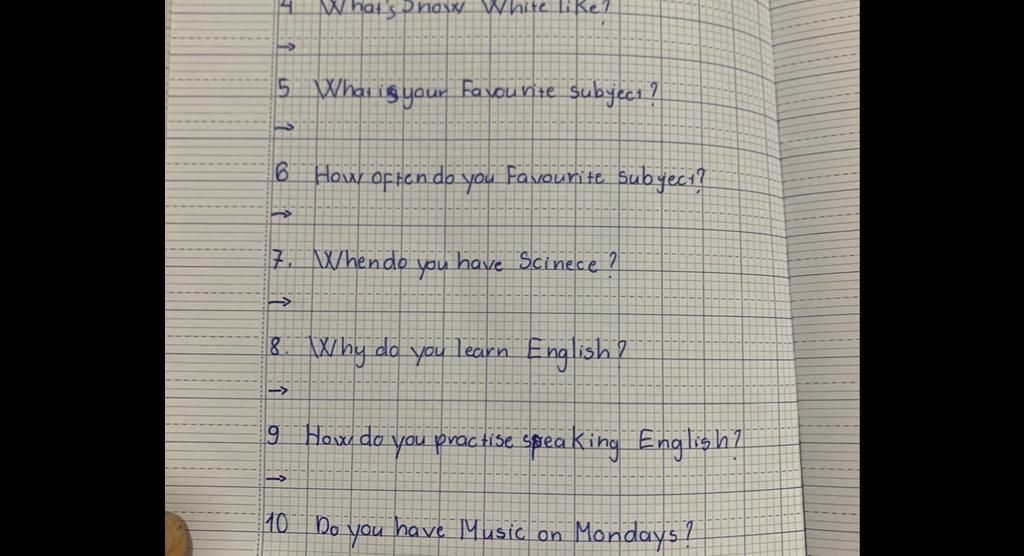 4 What's Snow White like?
→
5 What is your Favourite subject?
→
6 How often do you Favourite subject?
→
7. When do you have Scinece?
→
8. Why do you learn English?
→
9 How do you practise speaking English?
→
10 Do you have Music on Mondays?